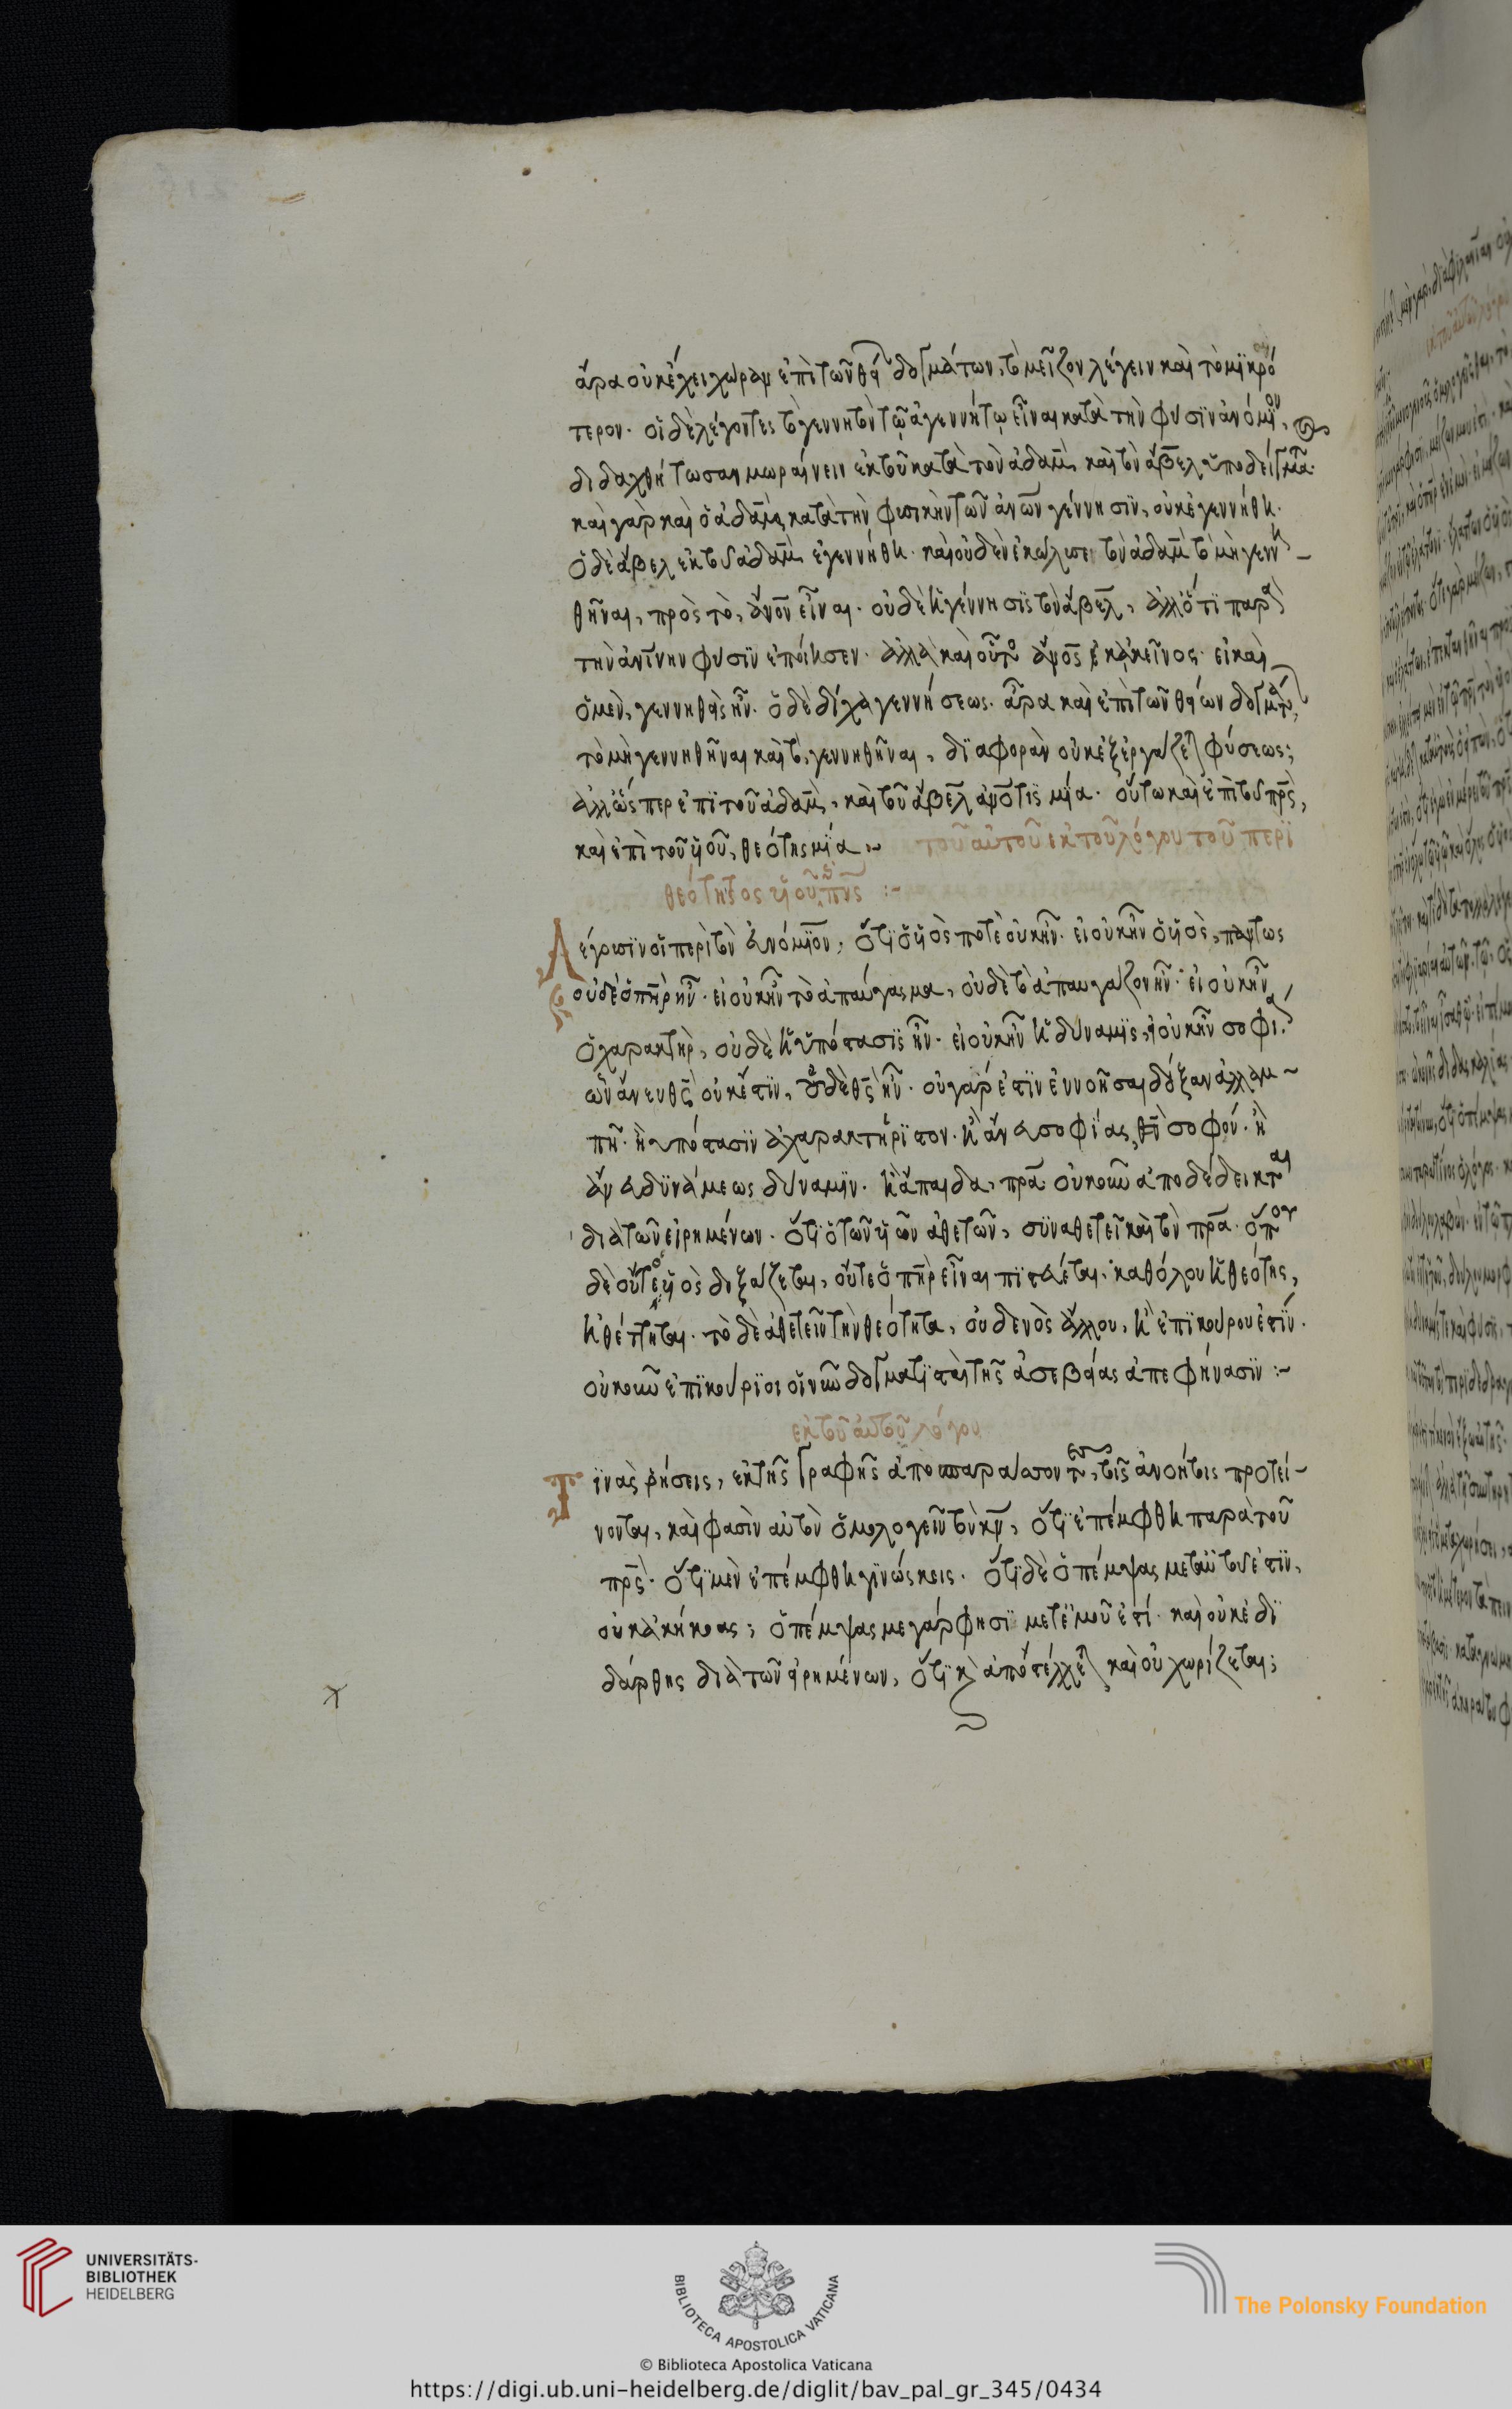 ἄρα οὐκ ἔχει χώραν ἐπὶ τῶν θείων δογμάτων, τὸ μεῖζον λέγειν καὶ τὸ μικρό
τερον. οἱ δὲ λέγοντες τὸ γεννητὸν τῷ ἀγεννήτῳ εἶναι κατὰ τὴν φύσιν ἀνόμοιον,
διδαχθήτωσαν μωραίνειν ἐκ τοῦ κατὰ τὸν ἀδὰμ, καὶ τὸν ἄβελ ὑποδείγματος.
καὶ γὰρ καὶ ὁ ἀδὰμ, κατὰ τὴν φυσικὴν τῶν ἀνων γέννησιν, οὐκ ἐγεννήθη.
ὁ δὲ ἄβελ ἐκ τοῦ ἀδὰμ ἐγεννήθη. καὶ οὐδὲν ἐκώλυσε τὸν ἀδὰμ τὸ μὴ γενη
θῆναι, πρὸς τὸ, ἄνον εἶναι. οὐδὲ ἡ γέννησις τὸν ἄβελ, ἄλλό τι παρὰ
τὴν ἀνίνην φύσιν ἐποίησεν. ἀλλὰ καὶ οὗτος ἄνος κἀκεῖνος. εἰ καὶ
ὁ μὲν, γεννηθεὶς ἦν. ὁ δὲ δίχα γεννήσεως. ἄρα καὶ ἐπὶ τῶν θείων δογμάτων,
τὸ μὴ γεννηθῆναι καὶ τὸ γεννηθῆναι, διαφορὰν οὐκ ἐξεργάζεται φύσεως;
ἀλλ' ὥσπερ ἐπὶ τοῦ ἀδὰμ, καὶ τοῦ ἄβελ ἀνότις μία. οὕτω καὶ ἐπὶ τοῦ πρς,
καὶ ἐπὶ τοῦ υἱοῦ, θεότης μία :~ τοῦ αὐτοῦ ἐκ τοῦ λόγου τοῦ περὶ
θεότητος υἱοῦ πνς :~
Λέγουσιν οἱ περὶ τὸν ἀνόμοιον, ὅτι ὁ υἱός ποτὲ οὐκ ἦν. εἰ οὐκ ἦν ὁ υἱὸς, πάντως
οὐδὲ ὁ πηρ ἦν. εἰ οὐκ ἦν τὸ ἀπαύγασμα, οὐδὲ τὸ ἀπαυγάζον ἦν. εἰ οὐκ ἦν
ὁ χαρακτὴρ, οὐδὲ ἡ ὑπόστασις ἦν. εἰ οὐκ ἦν ἡ δύναμις, ἢ οὐκ ἦν σοφία
ὧν ἄνευ θς οὐκ ἔστιν, οὐδὲ θς ἦν. οὐ γάρ ἐστιν ἐννοῆσαι δόξαν ἀλαμ
πῆ. ἢ ὑπόστασιν ἀχαρακτήριστον. ἢ ἄνευ σοφίας, θν σοφόν. ἢ
ἄνευ δυνάμεως δύναμιν. ἢ ἄπαιδα, πρα οὐκοῦν ἀποδέδεικται
διὰ τῶν εἰρημένων. ὅτι ὁ τῶν υἱῶν ἀθετῶν, συναθετεῖ καὶ τὸν πρα. ὅπου
δὲ οὔτε ὁ υἱὸς δοξάζεται, οὔτε ὁ πηρ εἶναι πιστεύεται. καθόλου ἡ θεότης,
ἠθέτηται. τὸ δὲ ἀθετεῖν τὴν θεότητα, οὐδενὸς ἄλλου, ἢ ἐπικούρου ἐστίν.
οὐκοῦν ἐπικούριοι οἱ νῦν δογματισταὶ τῆς ἀσεβείας ἀπεφήνασιν :~
ἐκ τοῦ αὐτοῦ λόγου
Τινὰς ῥήσεις, ἐκ τῆς γραφῆς ἀποσπαράσσοντες, τοῖς ἀνοήτοις προτεί
νονται, καὶ φασὶν αὐτὸν ὁμολογεῖν τὸν κν, ὅτι ἐπέμφθη παρὰ τοῦ
πρς. ὅτι μὲν ἐπέμφθη γινώσκεις. ὅτι δὲ ὁ πέμψας μετ' αὐτοῦ ἐστιν,
οὐκ ἀκήκοας; ὁ πέμψας με γάρ φησι μετ' ἐμοῦ ἐστί. καὶ οὐκ ἐδι
δάχθης διὰ τῶν εἰρημένων, ὅτι καὶ ἀποστέλλεται καὶ οὐ χωρίζεται;
UNIVERSITÄTS-
BIBLIOTHEK
HEIDELBERG
BIBLIOTECA APOSTOLICA VATICANA
The Polonsky Foundation
© Biblioteca Apostolica Vaticana
https://digi.ub.uni-heidelberg.de/diglit/bav_pal_gr_345/0434